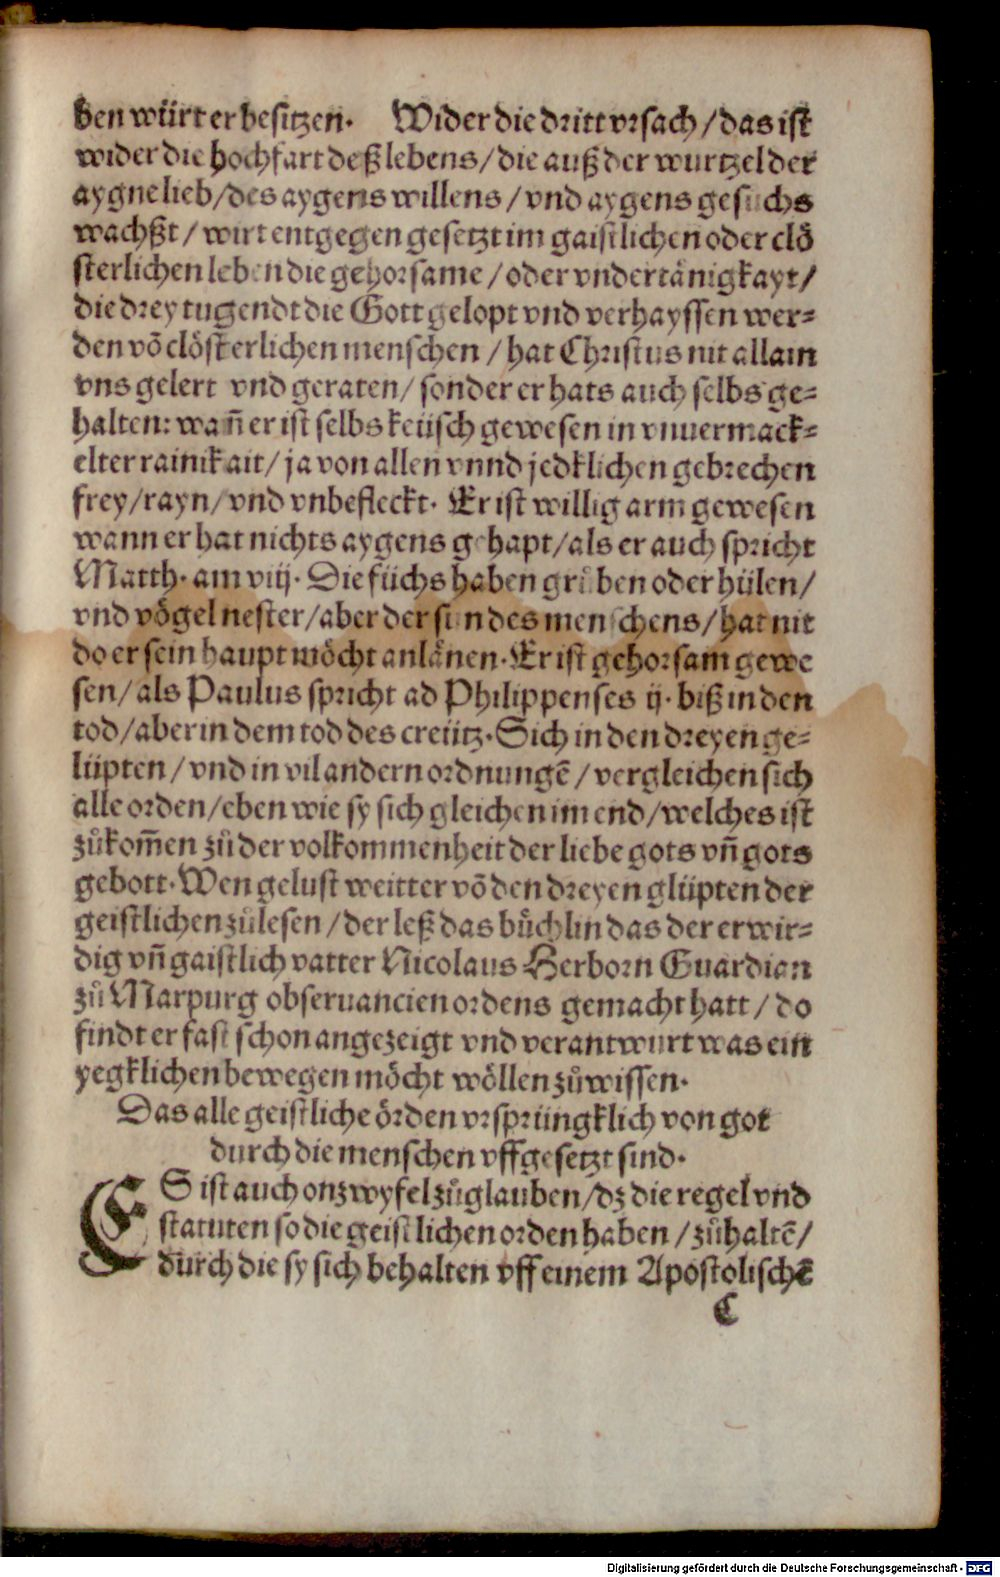 ben würt er besitzen. Wider die dritt vrsach / das ist
wider die hochfart deß lebens / die auß der wurtzel der
aygne lieb / des aygens willens / vnd aygens gesuchs
wachßt / wirt entgegen gesetzt im gaistlichen oder clö
sterlichen leben die gehorsame / oder vndertänigkayt /
die drey tugendt die Gott gelopt vnd verhayssen wer-
den võ clösterlichen menschen / hat Christus nit allain
vns gelert vnd geraten / sonder er hats auch selbs ge-
halten: wañ er ist selbs keüsch gewesen in vnuermack-
elter rainikait / ja von allen vnnd jedklichen gebrechen
frey / rayn / vnd vnbefleckt. Er ist willig arm gewesen
wann er hat nichts aygens gehapt / als er auch spricht
Matth. am viij. Die füchs haben grůben oder hülen /
vnd vögel nester / aber der sun des menschens / hat nit
do er sein haupt möcht anlänen. Er ist gehorsam gewe
sen / als Paulus spricht ad Philippenses ij. biß in den
tod / aber in dem tod des creütz. Sich in den dreyen ge-
lüpten / vnd in vil andern ordnungẽ / vergleichen sich
alle orden / eben wie sy sich gleichen im end / welches ist
zůkom̃en zů der volkommenheit der liebe gots vñ gots
gebott. Wen gelust weitter võ den dreyen glüpten der
geistlichen zůlesen / der leß das bůchlin das der erwir-
dig vñ gaistlich vatter Nicolaus Herborn Guardian
zů Marpurg obseruancien ordens gemacht hatt / do
findt er fast schon angezeigt vnd verantwurt was ein
yegklichen bewegen möcht wöllen zůwissen.
Das alle geistliche örden vrsprüngklich von got
durch die menschen vffgesetzt sind.
ES ist auch on zwyfel zůglauben / dz die regel vnd
statuten so die geistlichen orden haben / zůhaltẽ /
durch die sy sich behalten vff einem Apostolischẽ
C
Digitalisierung gefördert durch die Deutsche Forschungsgemeinschaft - DFG